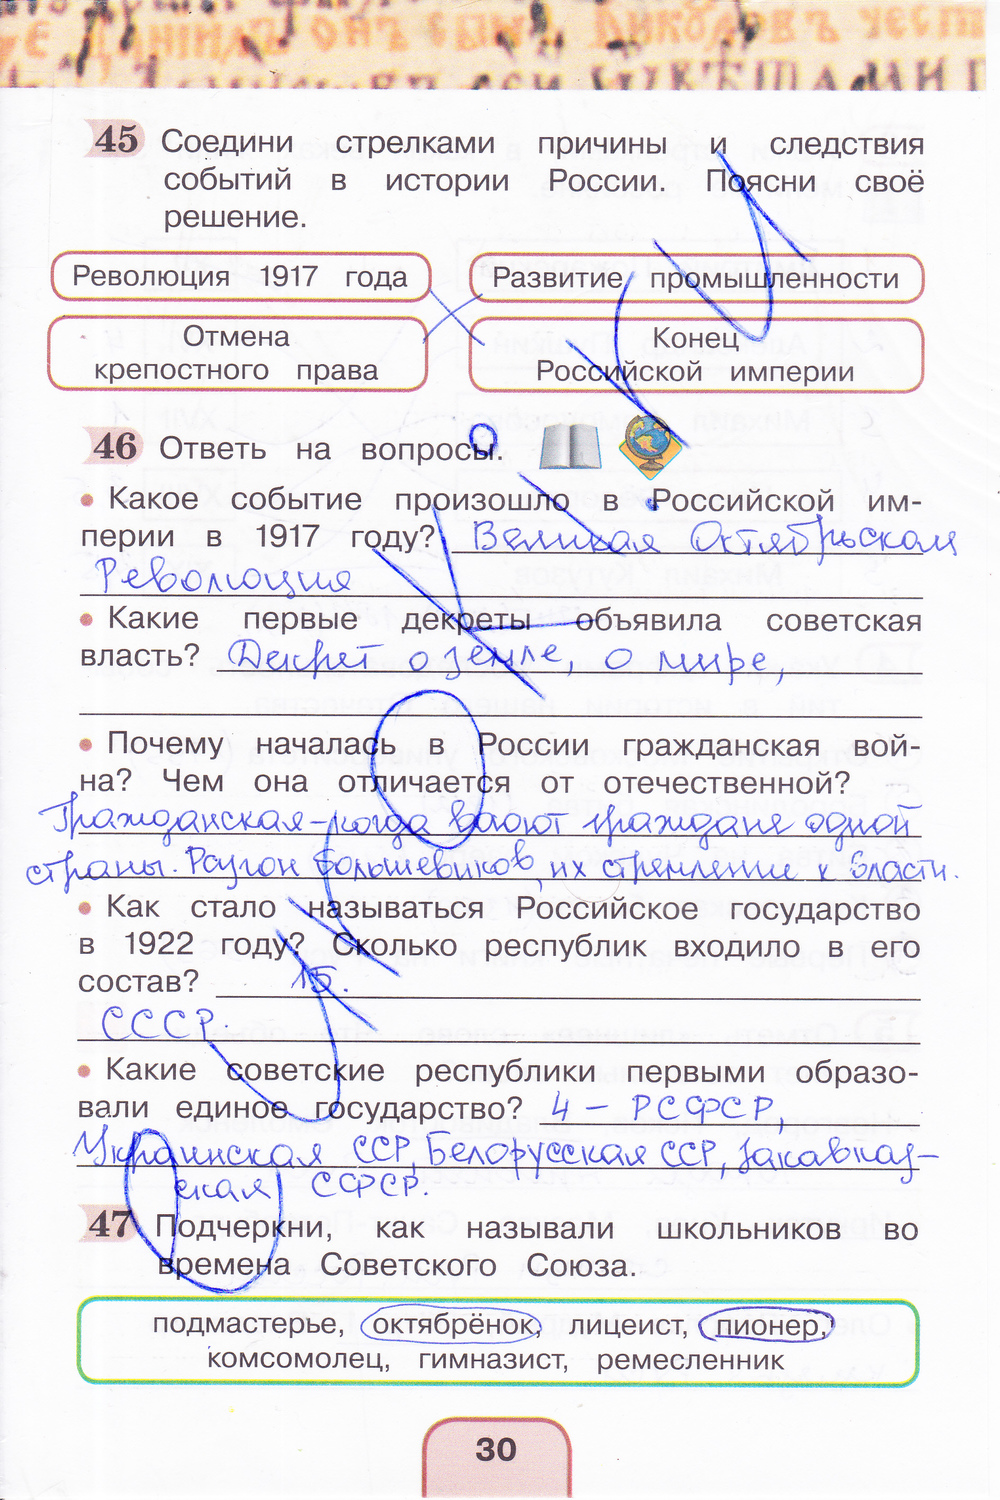 45 Соедини стрелками причины и следствия
событий в истории России. Поясни своё
решение.
Революция 1917 года Развитие промышленности
Отмена
крепостного права
Конец
Российской империи
46 Ответь на вопросы.
• Какое событие произошло в Российской им-
перии в 1917 году? Великая Октябрьская
Революция
• Какие первые декреты объявила советская
власть? Декрет о земле, о мире,
• Почему началась в России гражданская вой-
на? Чем она отличается от отечественной?
Гражданская-когда воюют граждане одной
страны. Разгон большевиков, их стремление к власти.
• Как стало называться Российское государство
в 1922 году? Сколько республик входило в его
состав? 15.
СССР.
• Какие советские республики первыми образо-
вали единое государство? 4 - РСФСР,
Украинская ССР, Белорусская ССР, Закавказ-
ская СФСР.
47 Подчеркни, как называли школьников во
времена Советского Союза.
подмастерье, октябрёнок, лицеист, пионер,
комсомолец, гимназист, ремесленник
30